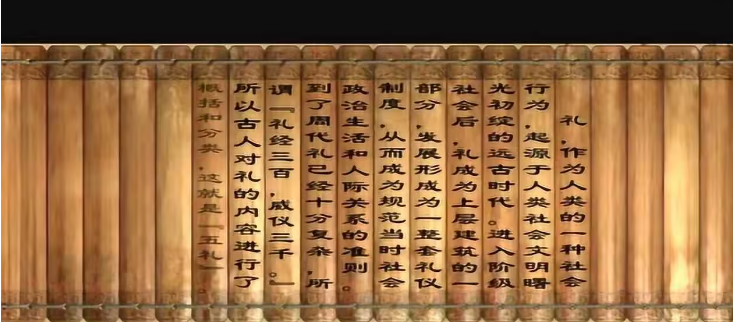 礼，作为人类的一种社会
行为，起源于人类社会文明曙
光初绽的远古时代。进入阶级
社会后，礼成为上层建筑的一
部分，发展形成为一整套礼仪
制度，从而成为规范当时社会
政治生活和人际关系的准则。
到了周代礼已经十分复杂，所
谓『礼经三百，威仪三千。』
所以古人对礼的内容进行了
概括和分类，这就是『五礼』。